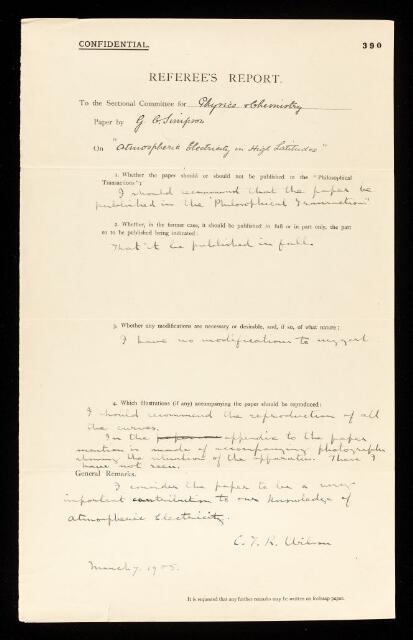 CONFIDENTIAL.
390
REFEREE'S REPORT.
To the Sectional Committee for Physics & Chemistry
Paper by G. C. Simpson
On "Atmospheric Electricity in High Latitudes"
1. Whether the paper should or should not be published in the "Philosophical
Transactions":
I should recommend that the paper be
published in the "Philosophical Transactions"
2. Whether, in the former case, it should be published in full or in part only, the part
so to be published being indicated:
That it be published in full.
3. Whether any modifications are necessary or desirable, and, if so, of what nature:
I have no modifications to suggest
4. Which illustrations (if any) accompanying the paper should be reproduced:
I should recommend the reproduction of all
the curves.
In the paper appendix to the paper
mention is made of accompanying photographs
showing the situation of the apparatus. These I
have not seen.
General Remarks.
I consider the paper to be a very
important contribution to our knowledge of
Atmospheric Electricity.
C. T. R. Wilson
March 7. 1905.
It is requested that any further remarks may be written on foolscap paper.